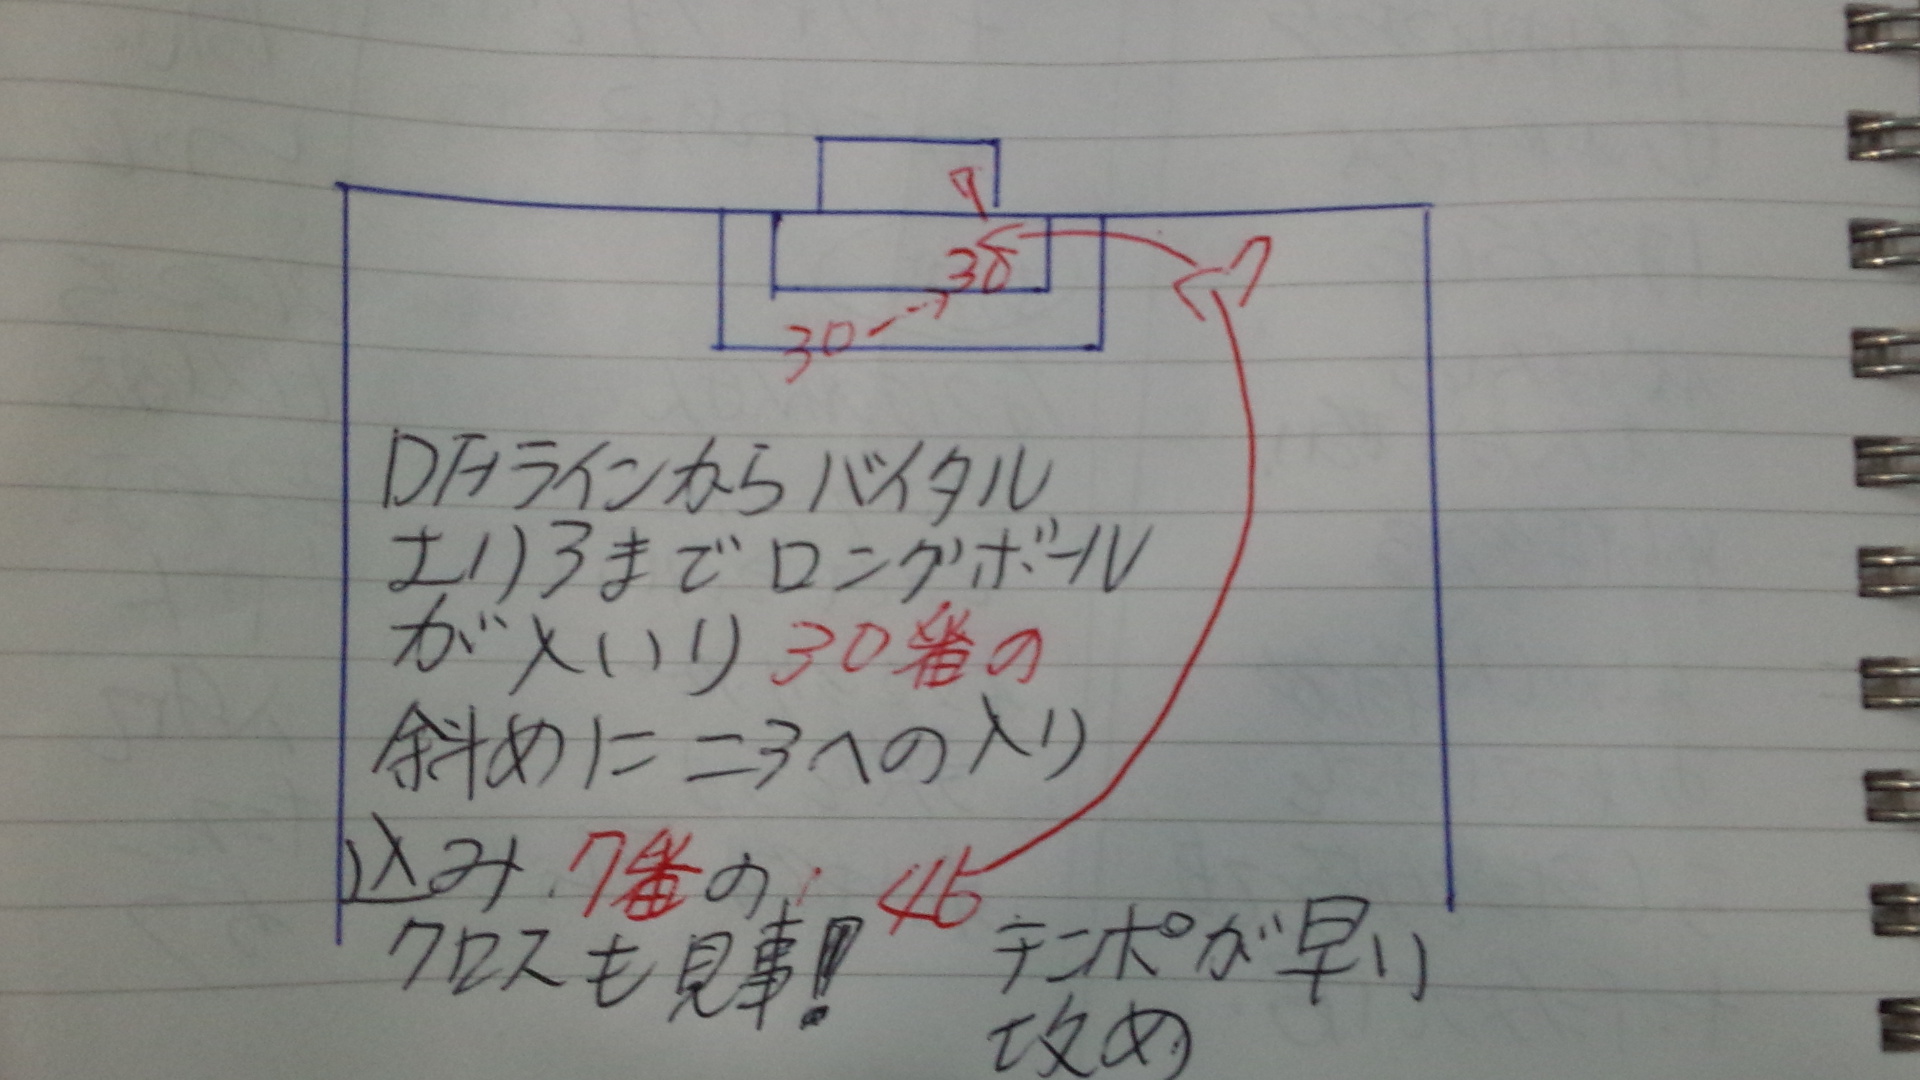 7
30
30
DFラインからバイタル
エリアまでロングボール
が入いり 30番の
斜めにニアへの入り
込み 7番の 45
クロスも見事!! テンポが早い
攻め